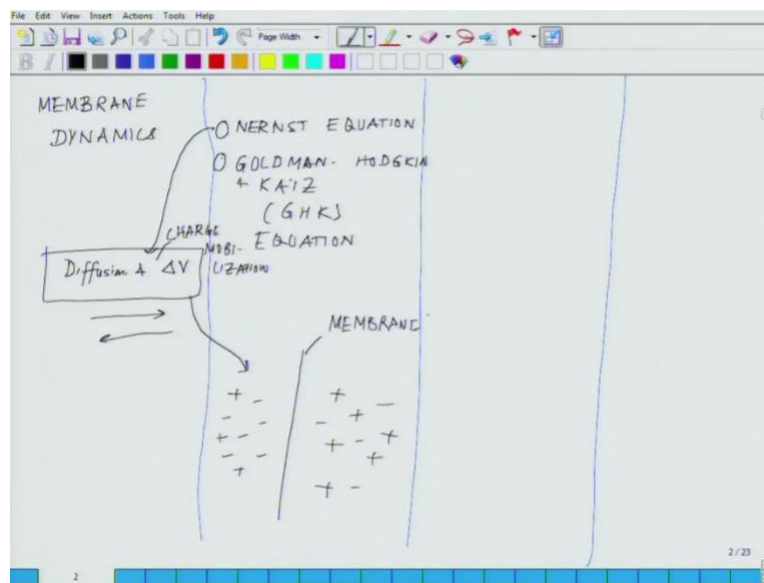 File Edit View Insert Actions Tools Help
Page Width
B I
MEMBRANE
DYNAMICS
NERNST EQUATION
GOLDMAN- HODGKIN
+ KATZ
(GHK)
EQUATION
CHARGE
MOBI-
LIZATION
Diffusion + ΔV
MEMBRANE
+ -
- 
+ - -
- -
+
+ -
- +
+ - +
+
+ -
2 / 23
2